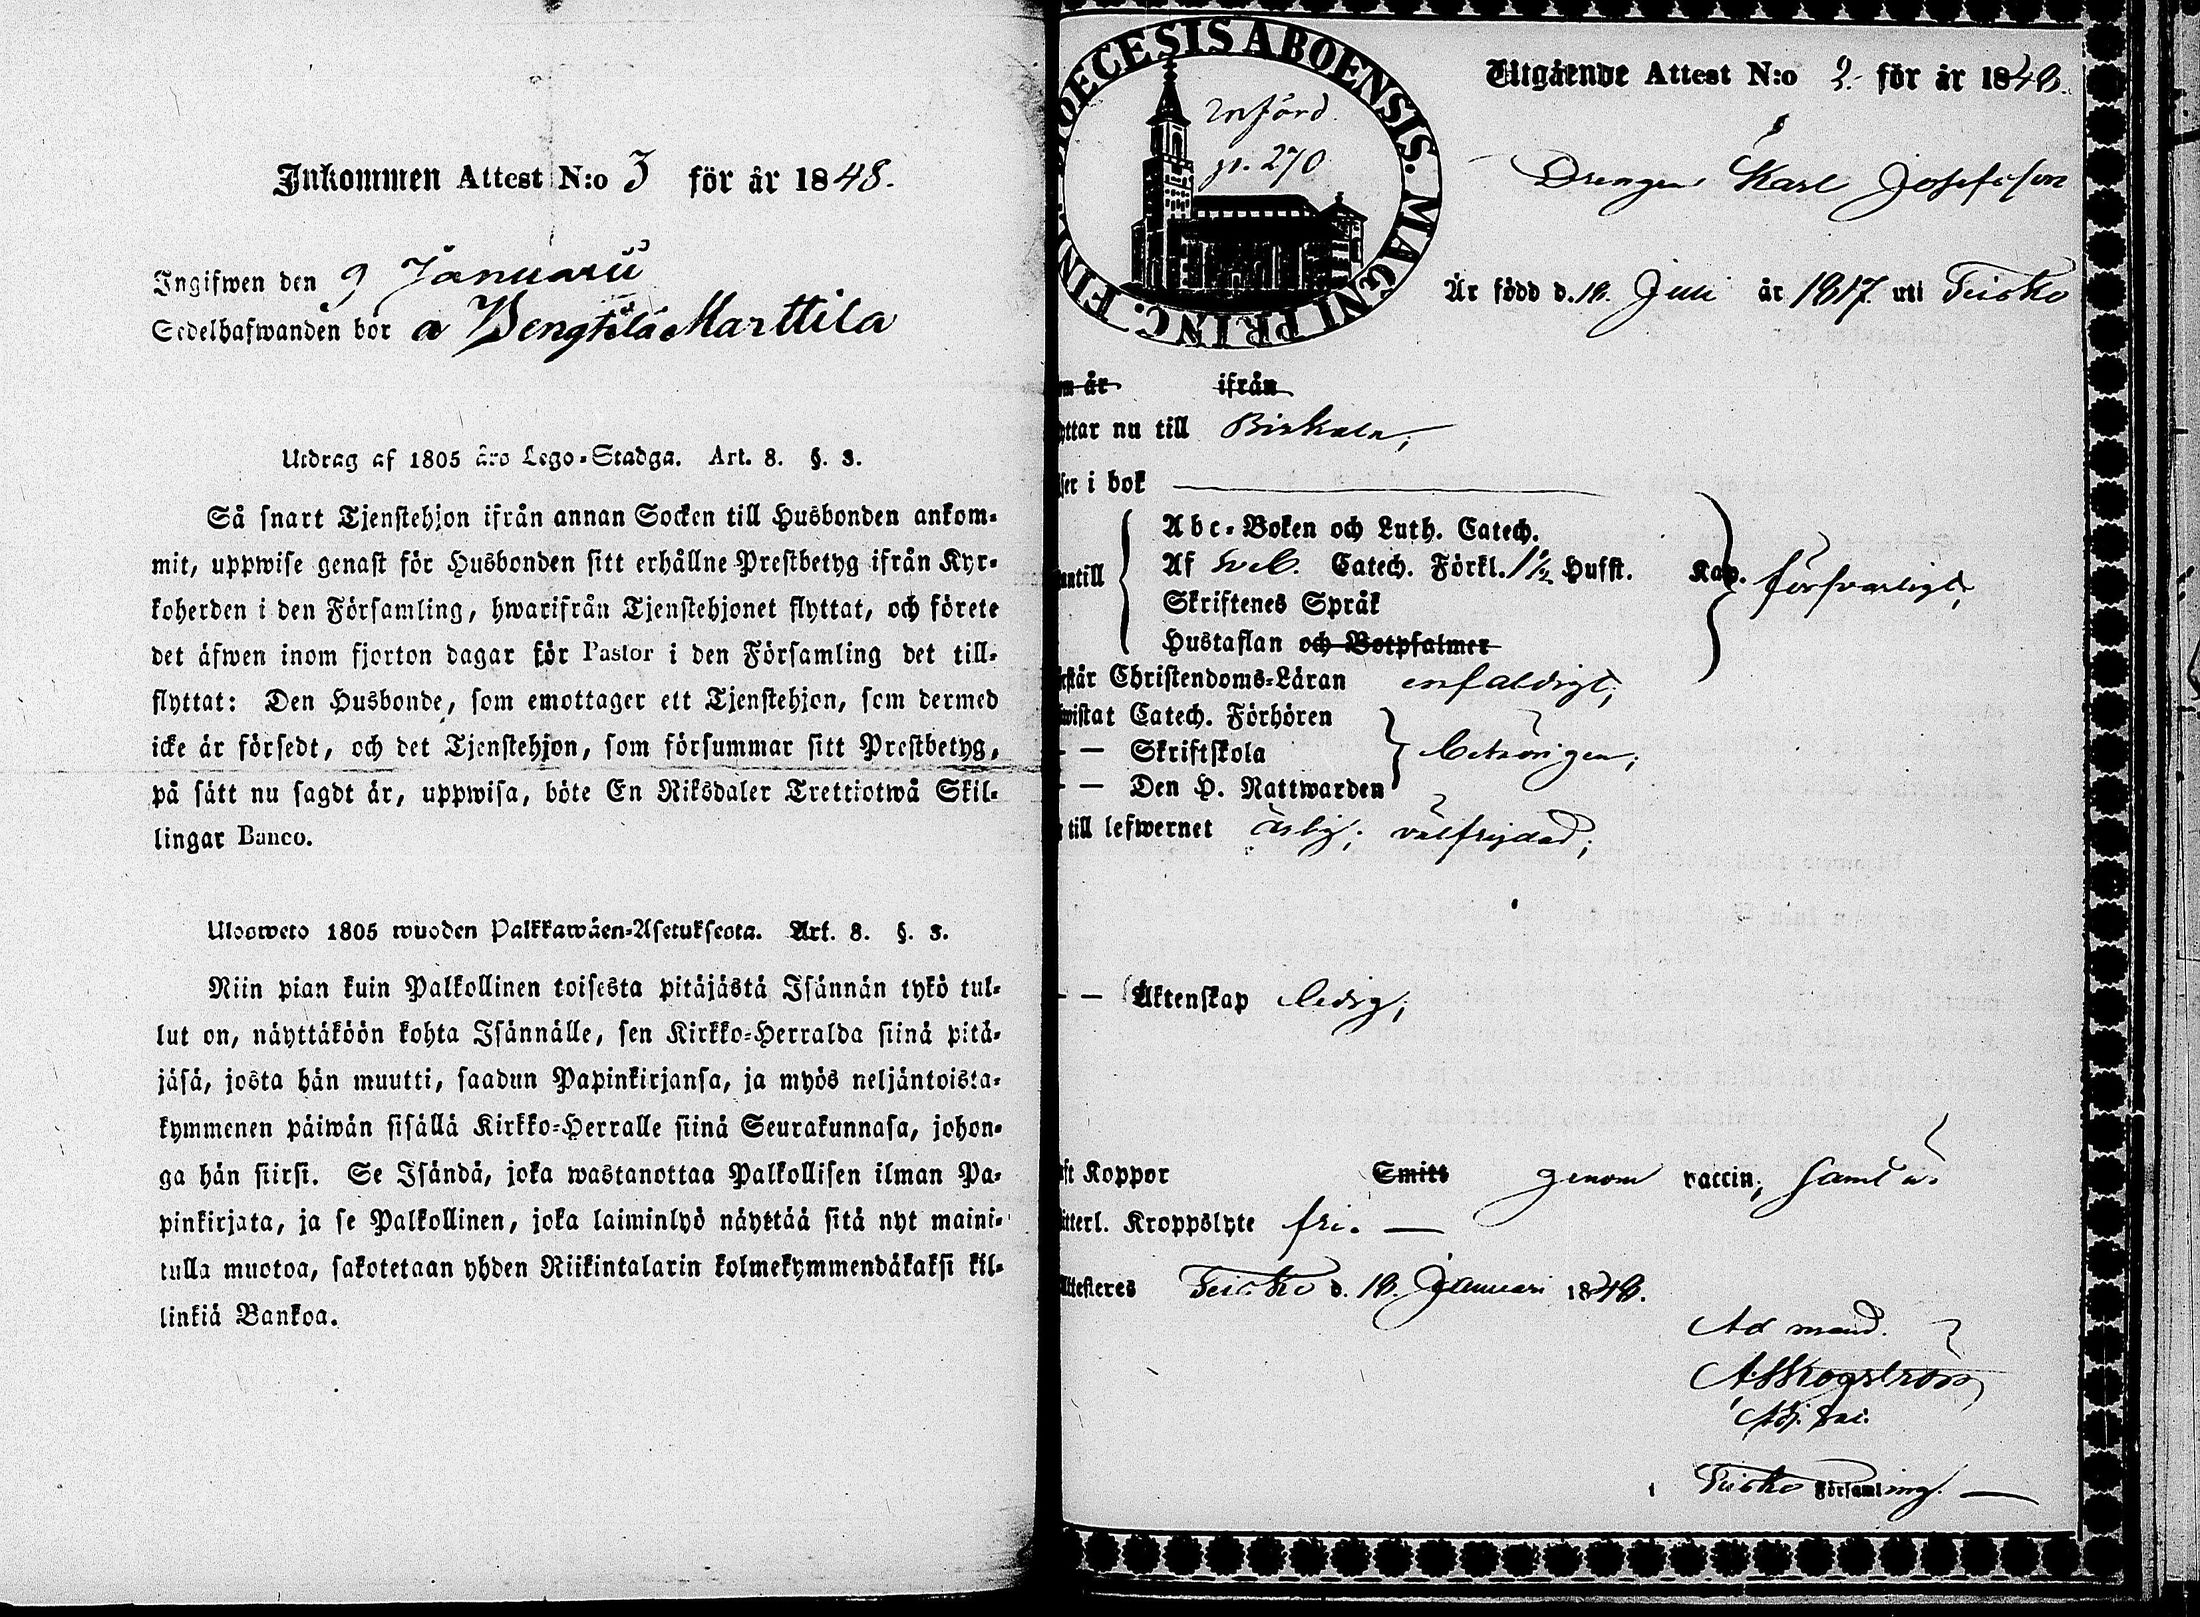 Inkommen Attest N:o 3 för år 1848.
Ingifwen den 9 Januarii
Sedelhafwanden bor å Bengtilä Marttila
Utdrag af 1805 års Lego-Stadga. Art. 8. §. 3.
Så snart Tjenstehjon ifrån annan Socken till Husbonden ankom-
mit, uppwise genast för Husbonden sitt erhållne Prestbetyg ifrån Kyr-
koherden i den Församling, hwarifrån Tjenstehjonet flyttat, och förete
det äfwen inom fjorton dagar för Pastor i den Församling det till-
flyttat: Den Husbonde, som emottager ett Tjenstehjon, som dermed
icke är försedt, och det Tjenstehjon, som försummar sitt Prestbetyg,
på sätt nu sagdt är, uppwisa, böte En Riksdaler Trettiotwå Skil-
lingar Banco.
Ulosweto 1805 wuoden Palkkawäen-Asetuksesta. Art. 8. §. 3.
Niin pian kuin Palkollinen toisesta pitäjästä Isännän tykö tul-
lut on, näyttäköön kohta Isännälle, sen Kirkko-Herralda siinä pitä-
jäsä, josta hän muutti, saadun Papinkirjansa, ja myös neljäntoista-
kymmenen päiwän sisällä Kirkko-Herralle siinä Seurakunnasa, johon-
ga hän siirsi. Se Isändä, joka wastanottaa Palkollisen ilman Pa-
pinkirjata, ja se Palkollinen, joka laiminlyö näyttää sitä nyt maini-
tulla muotoa, sakotetaan yhden Riikintalarin kolmekymmendäkaksi kil-
linkiä Bankoa.
DIOECESIS ABOENSIS. MAGNI PRINC. FINL.
Införd
p. 270
Utgående Attest N:o 2. för år 1848.
Drengen Karl Josefsson
Är född d. 18. Juli år 1817. uti Teisko
år ifrån
ttar nu till Birkala;
ser i bok
Abc-Boken och Luth. Catech.
antill Af Sveb. Catech. Förkl. 1 1/2 Hufst. Kap. försvarligt;
Skriftenes Språk
Hustaflan och Botpsalmer
står Christendoms-Läran enfaldigt;
wistat Catech. Förhören
— Skriftskola behörigen;
— Den H. Nattwarden
till lefwernet ärlig; välfrejdad;
— Äktenskap ledig;
ft Koppor Smitt genom vaccin; samt ä.
tterl. Kroppslyte fri. —
Attesteres Teisko d. 18. Januari 1848.
Ad mand.
A Skogström
Adj. Sac.
i Teisko Församling. —